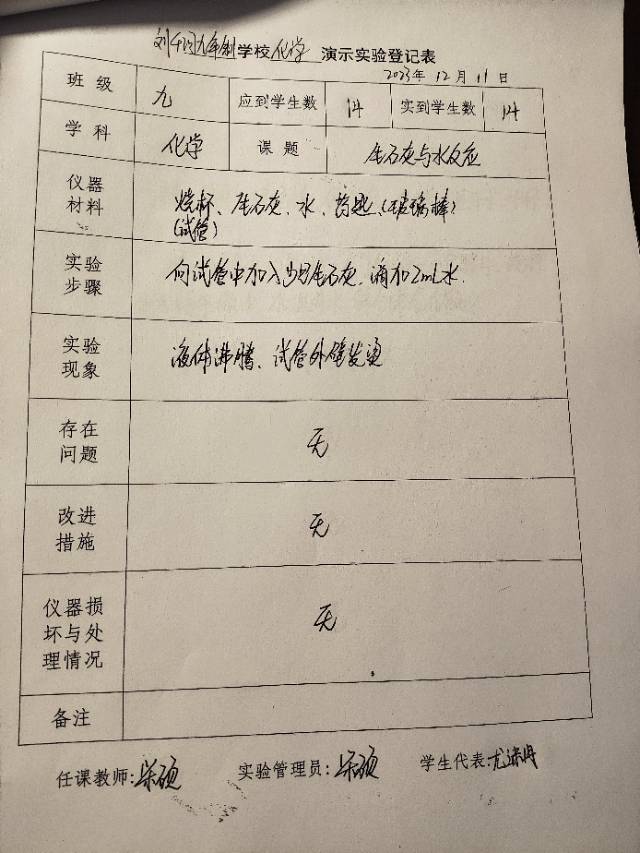 九年制学校 化学 演示实验登记表
2023年 12月 11日
班级 九 应到学生数 14 实到学生数 14
学科 化学 课题 生石灰与水反应
仪器材料 烧杯、生石灰、水、药匙、(玻璃棒)
(试管)
实验步骤 向试管中加入少量生石灰、滴加2mL水.
实验现象 液体沸腾、试管外壁发烫
存在问题 无
改进措施 无
仪器损坏与处理情况 无
备注
任课教师: 硕 实验管理员: 硕 学生代表: 尤